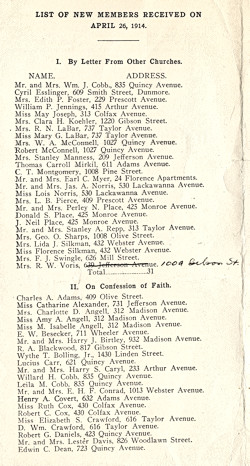 LIST OF NEW MEMBERS RECEIVED ON
APRIL 26, 1914.
I. By Letter From Other Churches.
NAME. ADDRESS.
Mr. and Mrs. Wm. J. Cobb, 835 Quincy Avenue.
Cyril Esslinger, 609 Smith Street, Dunmore.
Mrs. Edith P. Foster, 229 Prescott Avenue.
William P. Jennings, 415 Arthur Avenue.
Miss May Joseph, 313 Colfax Avenue.
Mrs. Clara H. Koehler, 1220 Gibson Street.
Mrs. R. N. LaBar, 737 Taylor Avenue.
Miss Mary G. LaBar, 737 Taylor Avenue.
Mrs. W. A. McConnell, 1027 Quincy Avenue.
Robert McConnell, 1027 Quincy Avenue.
Mrs. Stanley Manness, 209 Jefferson Avenue.
Thomas Carroll Mirkil, 611 Adams Avenue.
C. T. Montgomery, 1008 Pine Street.
Mr. and Mrs. Earl C. Myer, 24 Florence Apartments.
Mr. and Mrs. Jas. A. Norris, 530 Lackawanna Avenue.
Miss Lois Norris, 530 Lackawanna Avenue.
Mrs. L. B. Pierce, 409 Prescott Avenue.
Mr. and Mrs. Perley N. Place, 425 Monroe Avenue.
Donald S. Place, 425 Monroe Avenue.
J. Neil Place, 425 Monroe Avenue.
Mr. and Mrs. Stanley A. Repp, 313 Taylor Avenue.
Mrs. Geo. O. Sharps, 1008 Olive Street.
Mrs. Lida J. Silkman, 432 Webster Avenue.
Miss Florence Silkman, 432 Webster Avenue.
Mrs. F. J. Swingle, 626 Mill Street.
Mrs. R. W. Voris, 639 Jefferson Avenue. 1009 Gibson St.
Total 31
II. On Confession of Faith.
Charles A. Adams, 409 Olive Street.
Miss Catharine Alexander, 731 Jefferson Avenue.
Mrs. Charlotte D. Angell, 312 Madison Avenue.
Miss Amy A. Angell, 312 Madison Avenue.
Miss M. Isabelle Angell, 312 Madison Avenue.
E. W. Besecker, 711 Wheeler Avenue.
Mr. and Mrs. Harry J. Birtley, 932 Madison Avenue.
R. A. Blackwood, 817 Gibson Street.
Wythe T. Bolling, Jr., 1430 Linden Street.
Lucius Carr, 621 Quincy Avenue.
Mr. and Mrs. Harry S. Caryl, 233 Arthur Avenue.
Willard H. Cobb, 835 Quincy Avenue.
Leila M. Cobb, 835 Quincy Avenue.
Mr. and Mrs. E. H. F. Conrad, 1013 Webster Avenue.
Henry A. Covert, 632 Adams Avenue.
Miss Ruth Cox, 430 Colfax Avenue.
Robert C. Cox, 430 Colfax Avenue.
Miss Elizabeth S. Crawford, 616 Taylor Avenue.
D. Wm. Crawford, 616 Taylor Avenue.
Robert G. Daniels, 423 Quincy Avenue.
Mr. and Mrs. Lester Davis, 826 Woodlawn Street.
Edwin C. Dean, 723 Quincy Avenue.